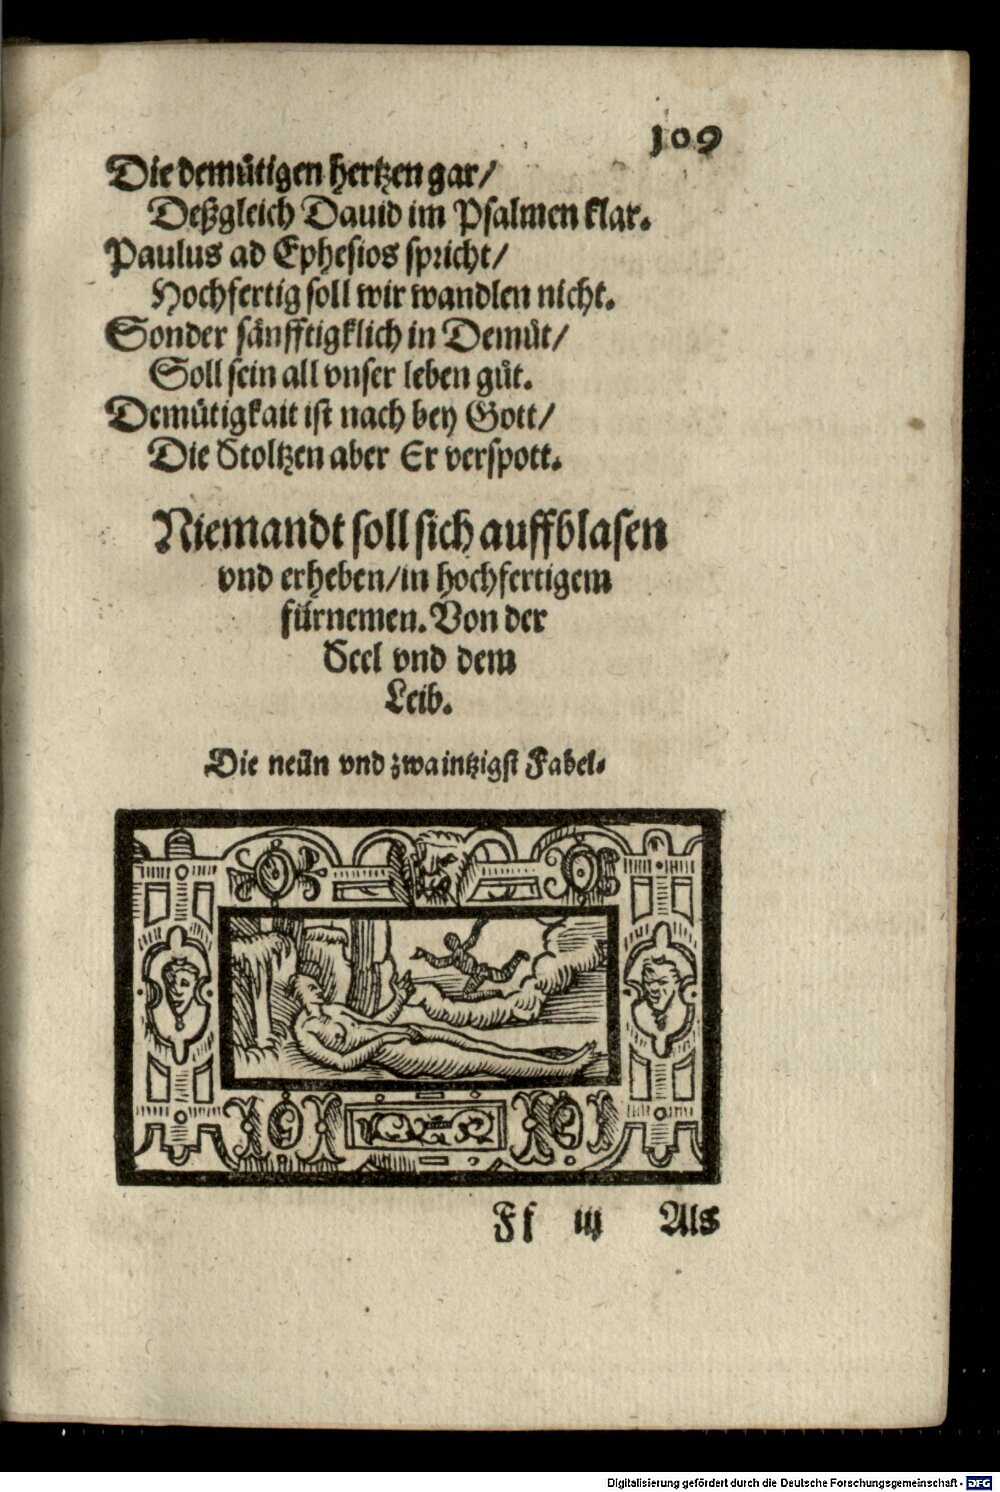 109
Die demütigen hertzen gar/
Deßgleich Dauid im Psalmen klar.
Paulus ad Ephesios spricht/
Hochfertig soll wir wandlen nicht.
Sonder sänfftigklich in Demüt/
Soll sein all vnser leben güt.
Demütigkait ist nach bey Gott/
Die Stoltzen aber Er verspott.
Niemandt soll sich auffblasen
vnd erheben/in hochfertigem
fürnemen. Von der
Seel vnd dem
Leib.
Die neün vnd zwaintzigst Fabel.
Ff iij Als
Digitalisierung gefördert durch die Deutsche Forschungsgemeinschaft - DFG